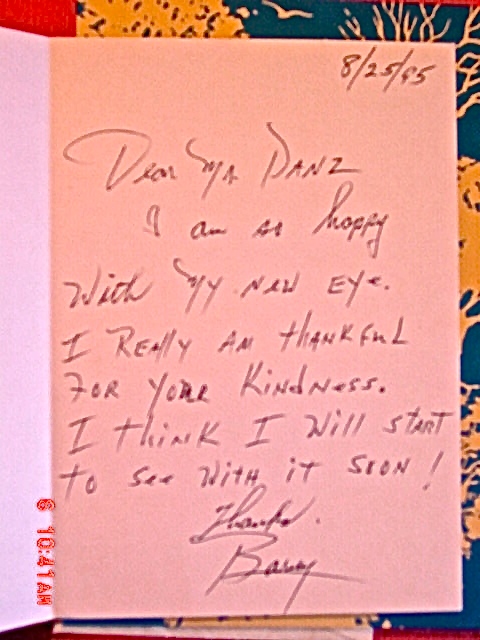 8/25/95
Dear Mr Danz
I am so happy
With My new Eye.
I REAlly AM thANKFuL
FOR YOUR KindNess.
I thiNK I Will stARt
to see With it SOON!
Thanks.
Barry
6 10:41AM